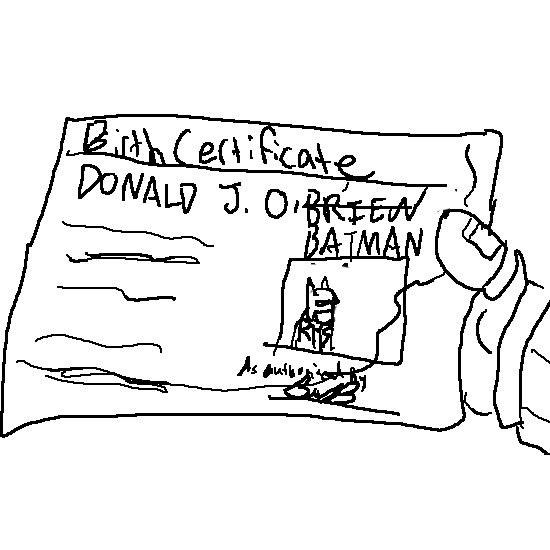 Birth Certificate
DONALD J. O'BRIEN
BATMAN
RIP
As authorised by